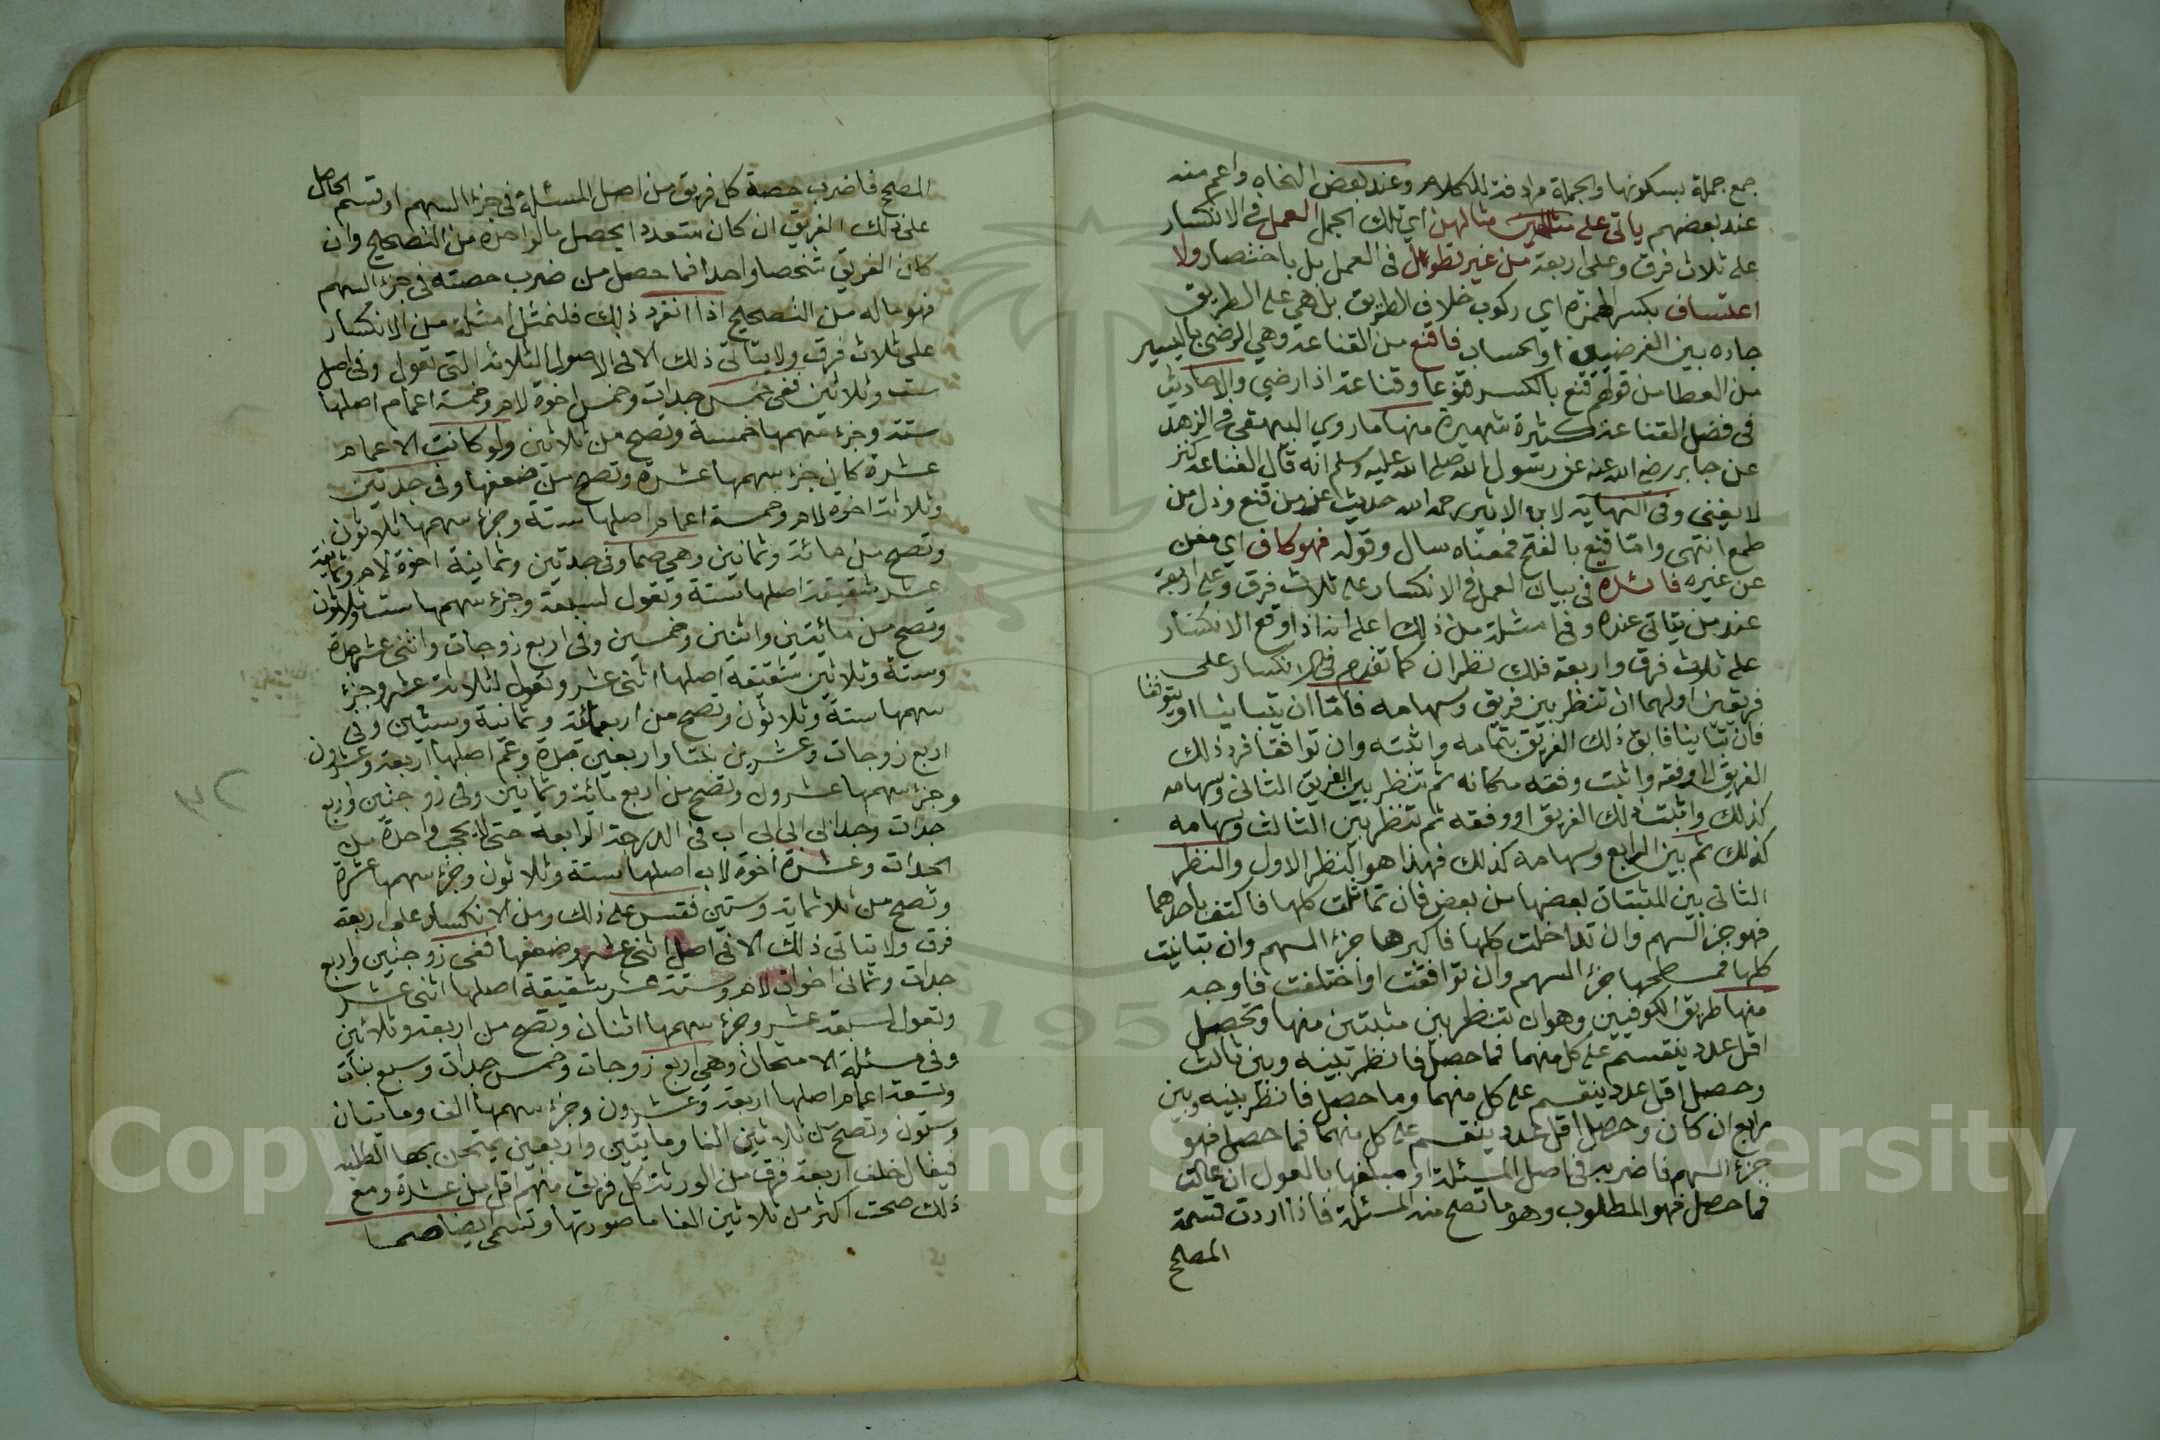 جمع جملة بسكونها والجملة مرادفة للكلام وعند بعض النحاه واعم منه
عند بعضهم ياتى على مثالهن اي تلك الجمل العمل في الانكسار
على ثلاث فرق وعلى اربعة من غير تطويل في العمل بل باختصار ولا
اعتساف بكسر الهمزة اي ركوب خلاف الطريق بل هي على الطريق
جاده بين الفرضيين او الحساب فاقنع من القناعة وهي الرضى باليسير
من العطا من قولهم قنع بالكسر قنوعا وقناعة اذا رضي والاحاديث
في فضل القناعة كثيرة شهيرة منها ما روي البيهقي في الزهد
عن جابر رضي الله عنه عن رسول الله صلى الله عليه وسلم انه قال القناعة كنز
لا يفنى وفى النهاية لابن الاثير رحمه الله حديث عز من قنع وذل من
طمع انتهى واما قنع بالفتح فمعناه سال وقوله فهو كاف اي مغن
عن غيره فائده في بيان العمل في الانكسار على ثلاث فرق وعلى اربعة
عند من يتاتى عنده وفي امثلة من ذلك اعلم انه اذا وقع الانكسار
على ثلاث فرق واربعة فلك نظران كما تقدم في الانكسار على
فريقين اولهما ان تنظر بين فريق وسهامه فاما ان يتباينا او يتوافقا
فان تباينا فابق ذلك الفريق بتمامه واثبته وان توافقا فرد ذلك
الفريق الى وفقه واثبت وفقه مكانه ثم تنظر بين الفريق الثانى وسهامه
كذلك واثبت ذلك الفريق او وفقه ثم تنظر بين الثالث وسهامه
كذلك ثم بين الرابع وسهامه كذلك فهذا هو النظر الاول والنظر
الثانى بين المثبتات بعضها من بعض فان تماثلت كلها فاكتف باحدهما
فهو جزء السهم وان تداخلت كلها فاكبرها جزء السهم وان تباينت
كلها فمسطحها جزء السهم وان توافقت او اختلفت فاوجه
منها طريق الكوفيين وهو ان تنظر بين مثبتين منها وتحصل
اقل عدد ينقسم على كل منهما فما حصل فانظر بينه وبين ثالث
وحصل اقل عدد ينقسم على كل منهما وما حصل فانظر بينه وبين
رابع ان كان وحصل اقل عدد ينقسم على كل منهما فما حصل فهو
جزء السهم فاضربه في اصل المسئلة او مبلغها بالعول ان عالت
فما حصل فهو المطلوب وهو ما تصح منه المسئلة فاذا اردت قسمة
المصلح
المصح فاضرب حصة كل فريق من اصل المسئلة في جزء السهم او قسم الحاصل
على ذلك الفريق ان كان متعددا يحصل ما لواحده من التصحيح وان
كان الفريق شخصا واحدا فما حصل من ضرب حصته في جزء السهم
فهو ماله من التصحيح اذا انفرد ذلك فلنمثل امثلة من الانكسار
على ثلاث فرق ولا يتاتى ذلك الا في الاصول الثلاثه التى تعول وفي اصل
ست وثلاثين ففي خمس جدات وخمس اخوة لام وخمسة اعمام اصلها
ستة وجزء سهمها خمسة وتصح من ثلاثين ولو كانت الاعمام
عشرة كان جزء سهمها عشرة وتصح من ضعفها وفى جدتين
وثلاثة اخوه لام وخمسة اعمام اصلها ستة وجزء سهمها ثلاثون
وتصح من مائة وثمانين وهي صما وفي جدتين وثمانية اخوة لام وثمانية
عشر شقيقة اصلها ستة وتعول لسبعة وجزء سهمها ست وثلاثون
وتصح من مائيتين واثنين وخمسين وفي اربع زوجات واثنى عشر جدة
وستة وثلاثين شقيقة اصلها اثنى عشر وتعول لثلاثة عشر وجزء
سهمها ستة وثلاثون وتصح من اربعمائة وثمانية وستين وفي
اربع زوجات وعشرين بنتا واربعين جدة وعم اصلها اربعة وعشرون
وجزء سهمها عشرون وتصح من اربع مائة وثمانين وفي زوجتين واربع
جدات وجد الى اب في الدرجة الرابعة حتى لا يحجب واحدة من
الجدات وعشرة اخوة لاب اصلها ستة وثلاثون وجزء سهمها عشرة
وتصح من ثلاثماية وستين فقس على ذلك ومن الانكسار على اربعة
فرق ولا يتاتى ذلك الا في اصل اثنى عشر وضعفها ففى زوجتين واربع
جدات وثمانى اخوات لام وستة عشر شقيقة اصلها اثنى عشر
وتعول لسبعة عشر وجزء سهمها اثنان وتصح من اربعة وثلاثين
وفي مسئلة الامتحان وهي اربع زوجات وخمس جدات وسبع بنات
وتسعة اعمام اصلها اربعة وعشرون وجزء سهمها الف ومايتان
وستون وتصح من ثلاثين الفا ومايتين واربعين يمتحن بها الطلبه
فيقال خلف اربعة فرق من الورثة كل فريق منهم اقل من عشرة ومع
ذلك صحت اكثر من ثلاثين الفا ما صورتها وتسمى ايضا صما
Copyright © King Saud University
1957